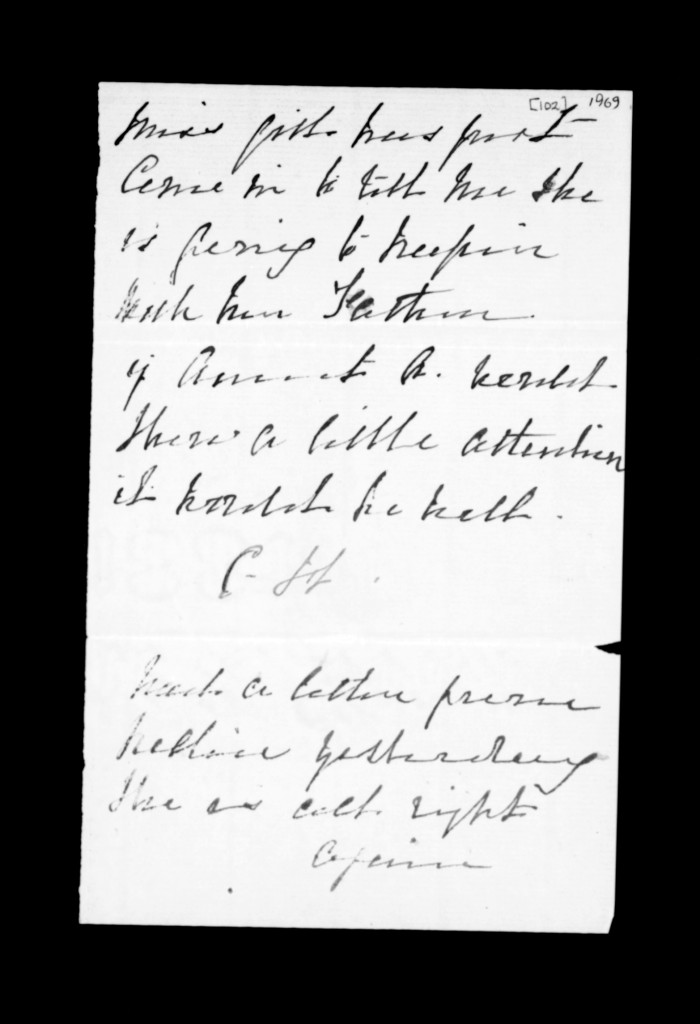 [102] 1969
Miss Gill has just
Come in to tell me she
is going to keep in
with her Father.
if Aunt A. would
show a little attention
it would be well.
C. H.
had a letter from
Nellie yesterday
She is all right
again